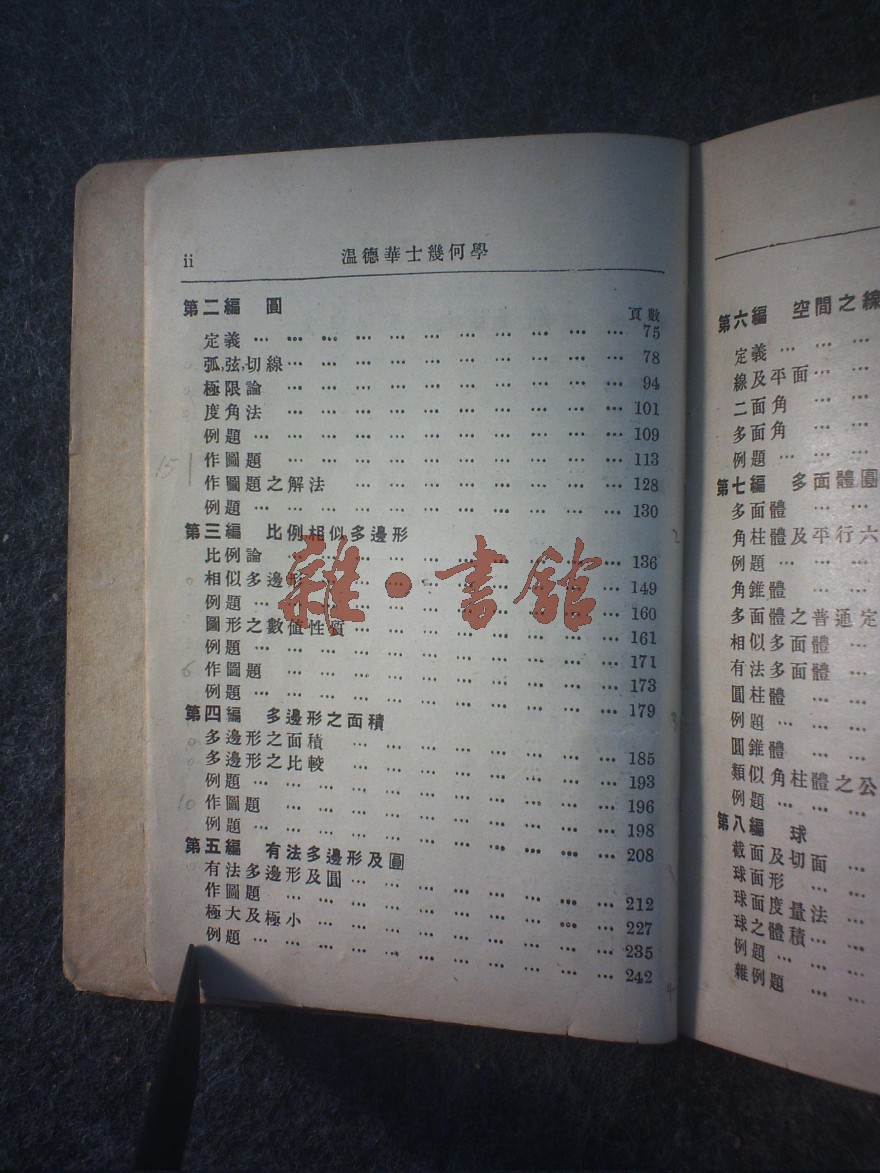 ii 温德華士幾何學
第二編 圓 頁數
定義 … … … … … … … … … … 75
弧,弦,切線 … … … … … … … … … 78
極限論 … … … … … … … … … 94
度角法 … … … … … … … … … 101
例題 … … … … … … … … … … 109
作圖題 … … … … … … … … … 113
作圖題之解法 … … … … … … … 128
例題 … … … … … … … … … … 130
第三編 比例相似多邊形
比例論 … … … … … … … … … 136
相似多邊形 … … … … … … … … 149
例題 … … … … … … … … … … 160
圖形之數值性質 … … … … … … … 161
例題 … … … … … … … … … … 171
作圖題 … … … … … … … … … 173
例題 … … … … … … … … … … 179
第四編 多邊形之面積
多邊形之面積 … … … … … … … 185
多邊形之比較 … … … … … … … 193
例題 … … … … … … … … … … 196
作圖題 … … … … … … … … … 198
例題 … … … … … … … … … … 208
第五編 有法多邊形及圓
有法多邊形及圓 … … … … … … … 212
作圖題 … … … … … … … … … 227
極大及極小 … … … … … … … … 235
例題 … … … … … … … … … … 242
15
6
10
雜·書館
第六編 空間之線
定義 … … …
線及平面 … …
二面角 … …
多面角 … …
例題 … … …
第七編 多面體圓
多面體 … …
角柱體及平行六
例題 … … …
角錐體 … …
多面體之普通定
相似多面體 …
有法多面體 …
圓柱體 … …
例題 … … …
圓錐體 … …
類似角柱體之公
例題 … … …
第八編 球
截面及切面 …
球面形 … …
球面度量法 …
球之體積 … …
例題 … … …
雜例題 … …